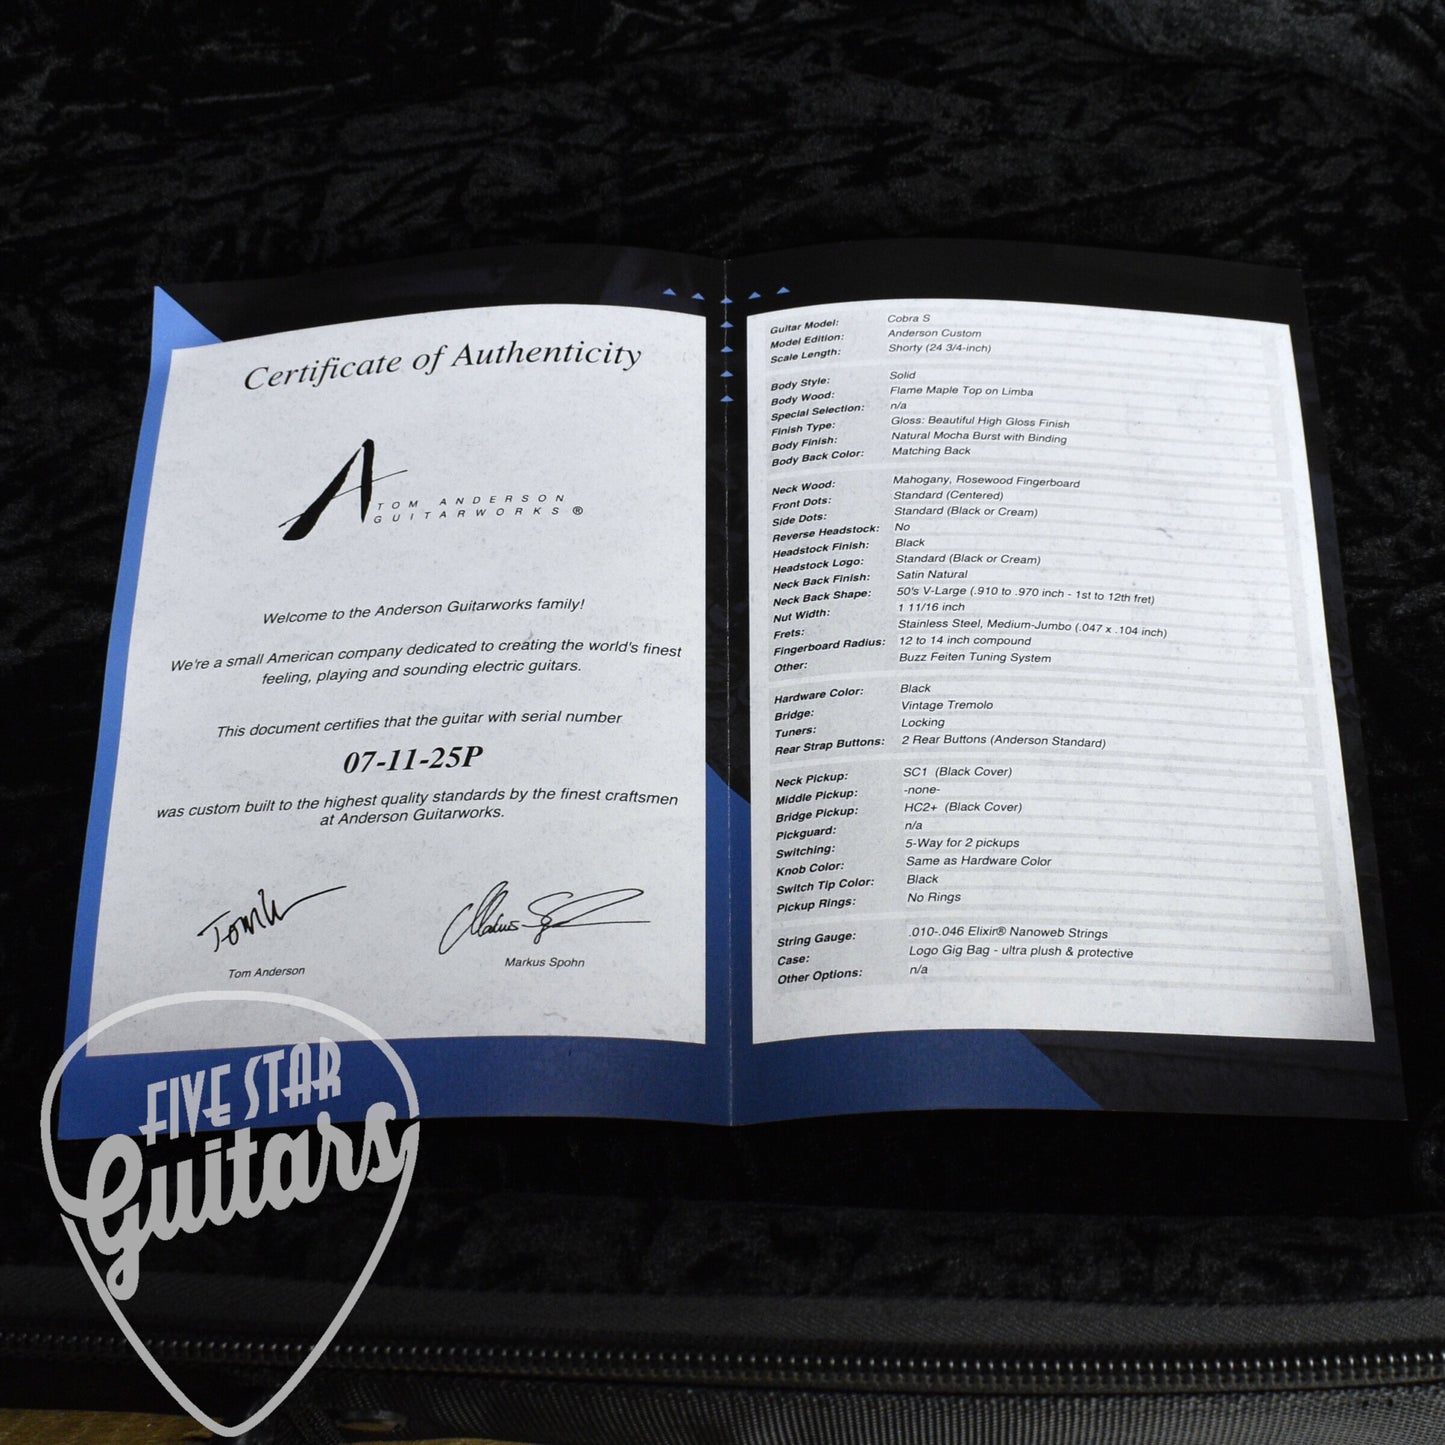 Certificate of Authenticity
A
TOM ANDERSON
GUITARWORKS ®
Welcome to the Anderson Guitarworks family!
We're a small American company dedicated to creating the world's finest
feeling, playing and sounding electric guitars.
This document certifies that the guitar with serial number
07-11-25P
was custom built to the highest quality standards by the finest craftsmen
at Anderson Guitarworks.
Tom Anderson
Markus Spohn
Guitar Model: Cobra S
Model Edition: Anderson Custom
Scale Length: Shorty (24 3/4-inch)
Body Style: Solid
Body Wood: Flame Maple Top on Limba
Special Selection: n/a
Finish Type: Gloss: Beautiful High Gloss Finish
Body Finish: Natural Mocha Burst with Binding
Body Back Color: Matching Back
Neck Wood: Mahogany, Rosewood Fingerboard
Front Dots: Standard (Centered)
Side Dots: Standard (Black or Cream)
Reverse Headstock: No
Headstock Finish: Black
Headstock Logo: Standard (Black or Cream)
Neck Back Finish: Satin Natural
Neck Back Shape: 50's V-Large (.910 to .970 inch - 1st to 12th fret)
Nut Width: 1 11/16 inch
Frets: Stainless Steel, Medium-Jumbo (.047 x .104 inch)
Fingerboard Radius: 12 to 14 inch compound
Other: Buzz Feiten Tuning System
Hardware Color: Black
Bridge: Vintage Tremolo
Tuners: Locking
Rear Strap Buttons: 2 Rear Buttons (Anderson Standard)
Neck Pickup: SC1 (Black Cover)
Middle Pickup: -none-
Bridge Pickup: HC2+ (Black Cover)
Pickguard: n/a
Switching: 5-Way for 2 pickups
Knob Color: Same as Hardware Color
Switch Tip Color: Black
Pickup Rings: No Rings
String Gauge: .010-.046 Elixir® Nanoweb Strings
Case: Logo Gig Bag - ultra plush & protective
Other Options: n/a
FIVE STAR
Guitars